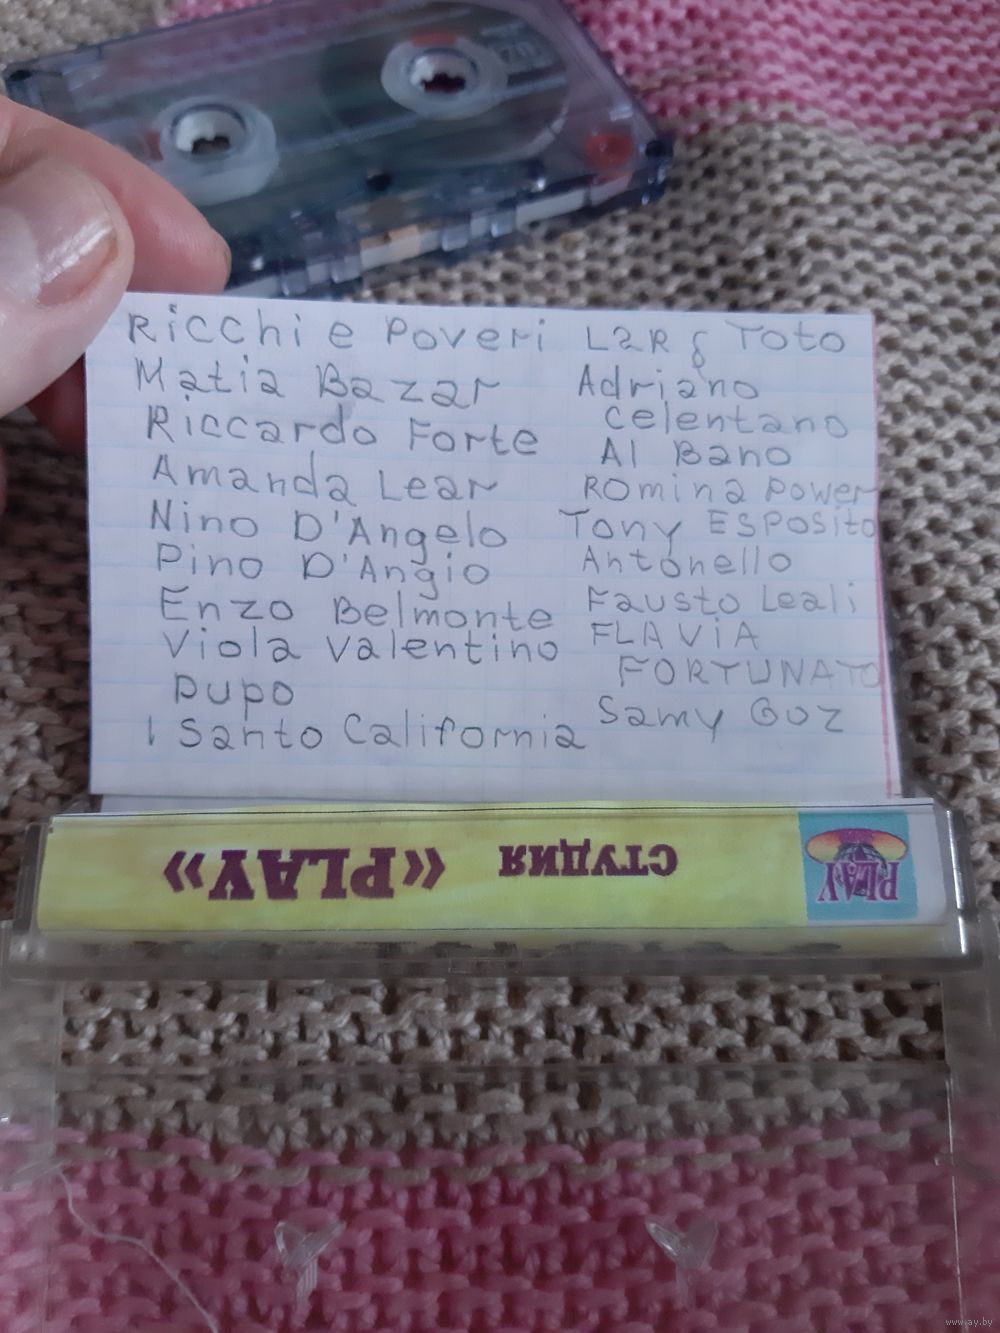 Ricchi e Poveri
Matia Bazar
Riccardo Forte
Amanda Lear
Nino D'Angelo
Pino D'Angio
Enzo Belmonte
Viola Valentino
Pupo
I Santo California
Toto
Adriano
Celentano
Al Bano
Romina Power
Tony ESPOSito
Antonello
Fausto Leali
FLAViA
FORTUNATO
Samy Goz
СТУДИЯ «PLAY»
PLAY
www.ay.by